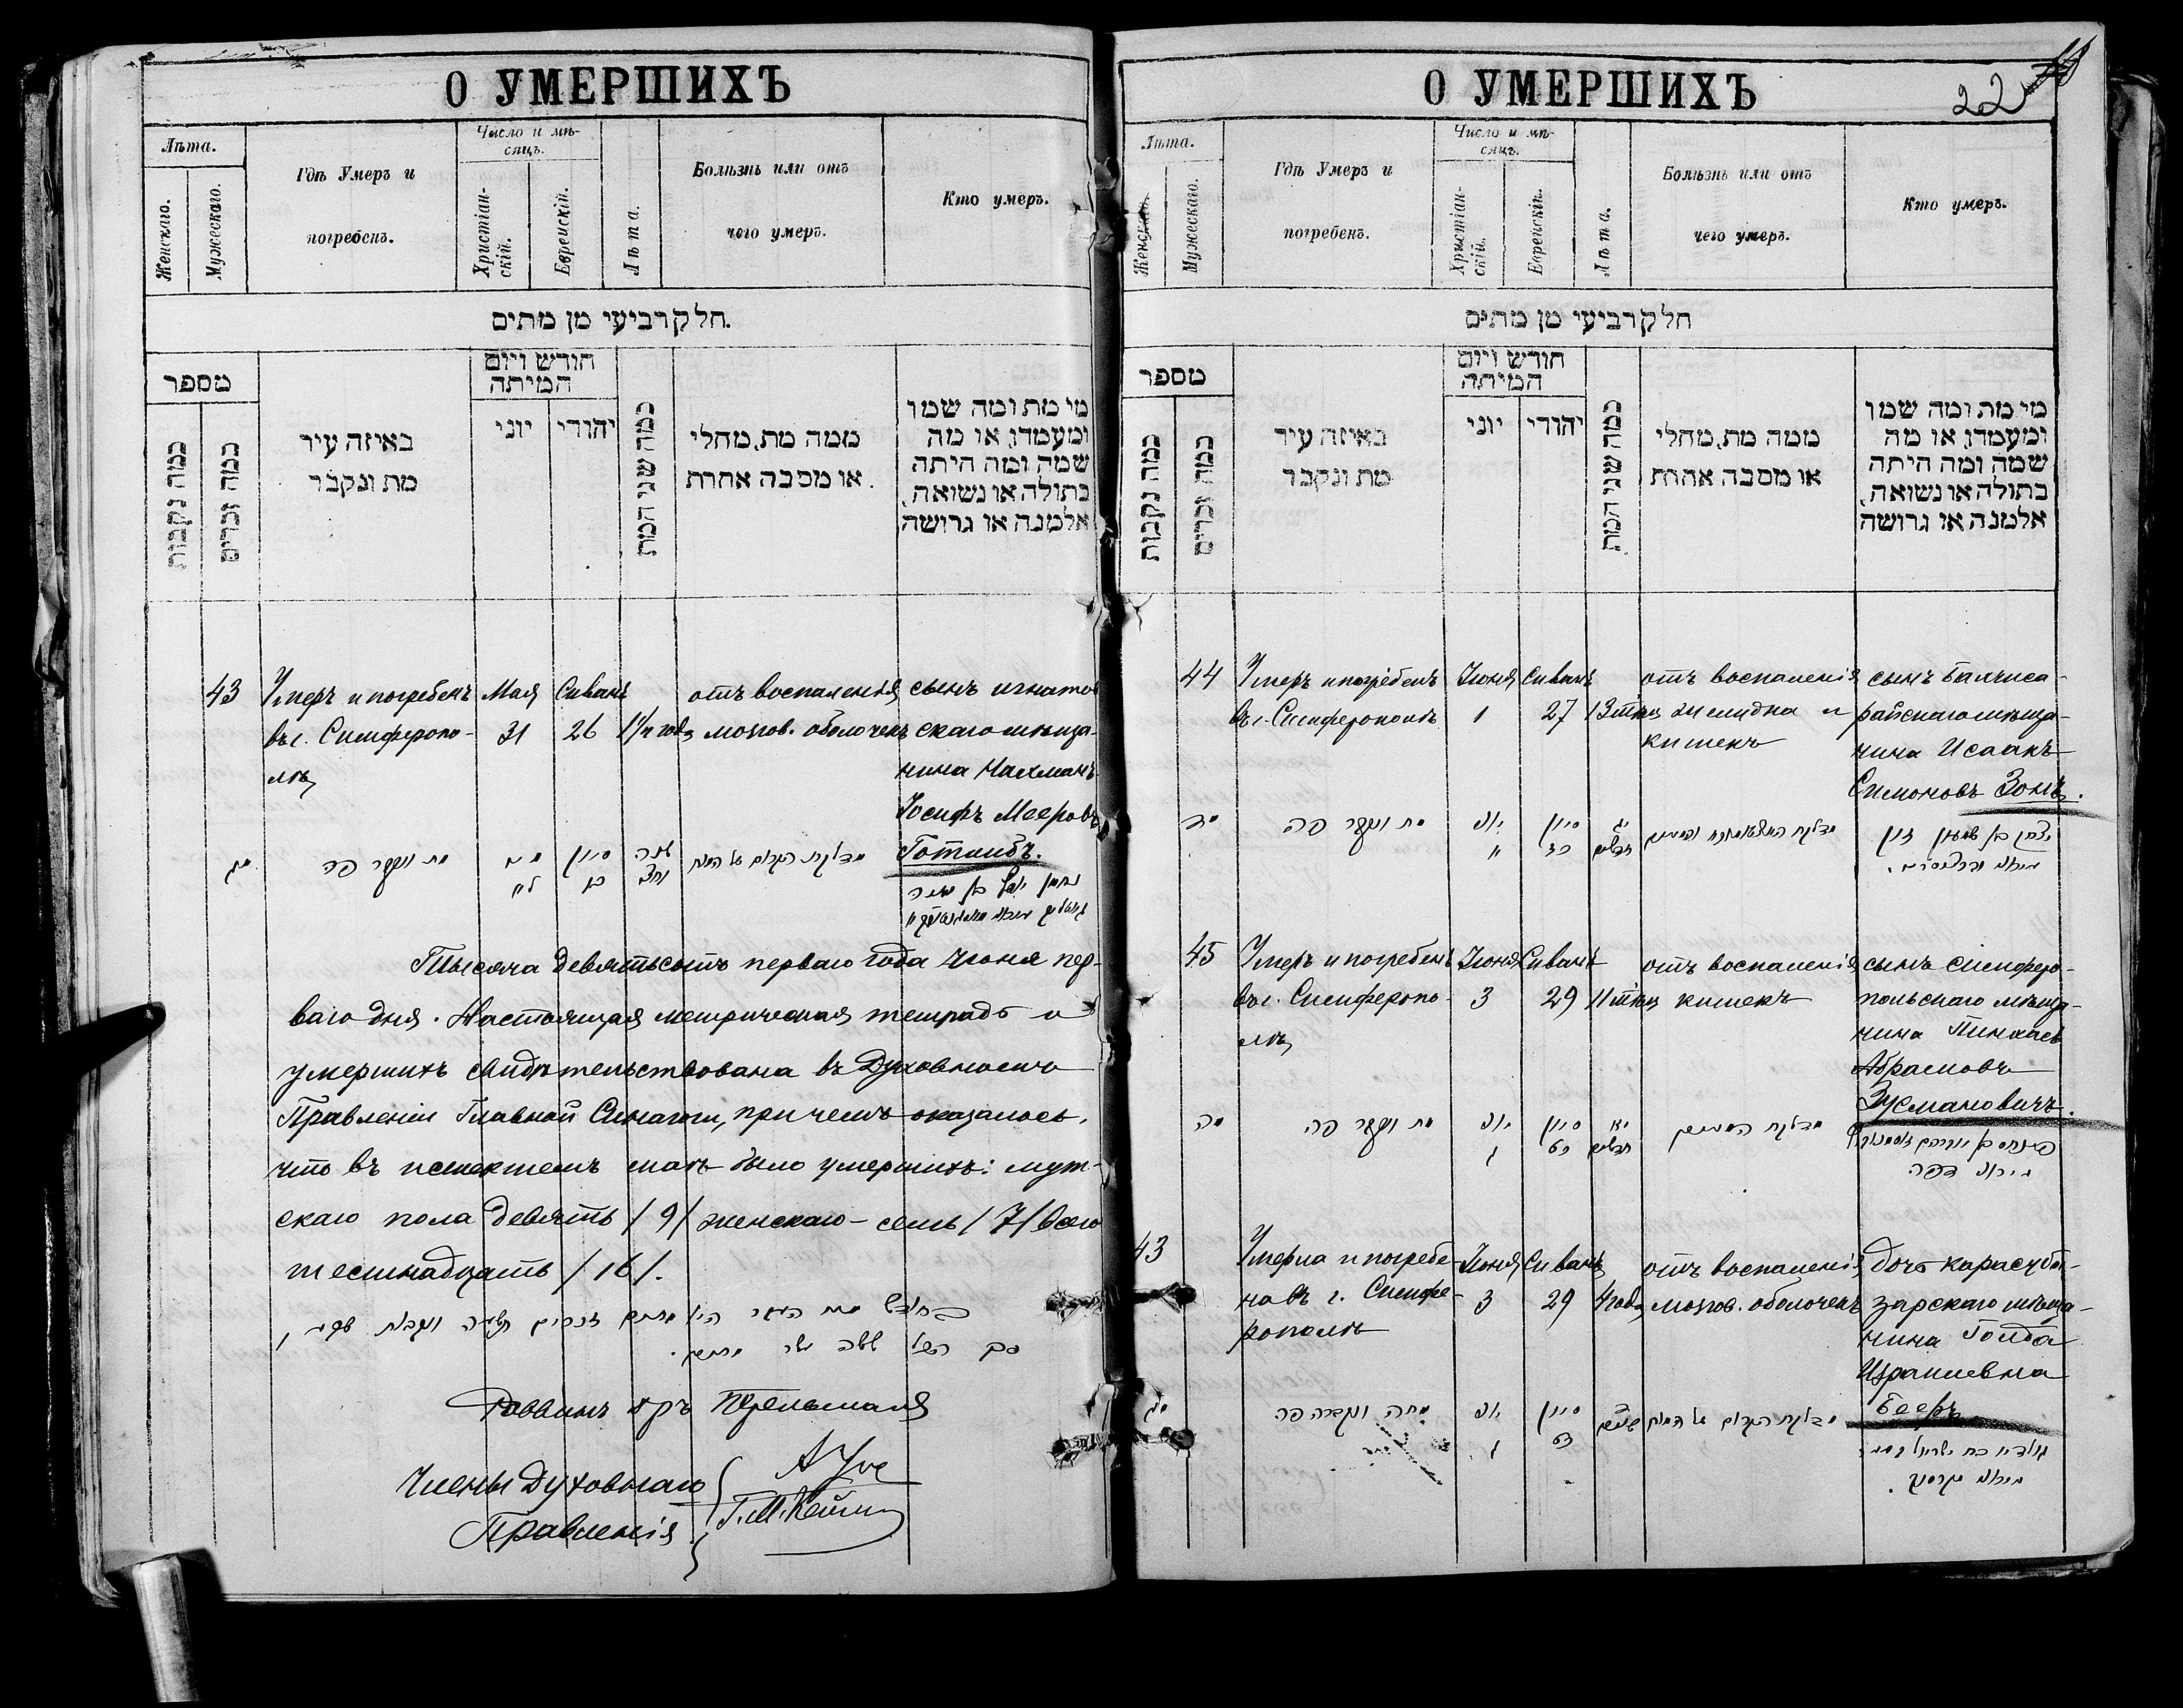 О УМЕРШИХЪ
Лѣта.
Женскаго.
Мужескаго.
Гдѣ Умеръ и
погребенъ.
Число и мѣ-
сяцъ.
Христіан-
скій.
Еврейскій.
Лѣта.
Болѣзнь или отъ
чего умеръ.
Кто умеръ.
חלק רביעי מן מתים
מספר
כמה נקבות
כמה זכרים
באיזה עיר
מת ונקבר
חודש ויום
המיתה
יוני
יהודי
כמה שני המת
ממה מת, מחלי
או מסבה אחרת
מי מת ומה שמו
ומעמדו, או מה
שמה ומה היתה
בתולה או נשואה,
אלמנה או גרושה
43
Умеръ и погребенъ
въ г. Симферопо-
лѣ
Мая
31
Сиванъ
26
1½ года
отъ воспаленія
мозгов. оболочекъ
сынъ игнатов
скаго мѣща-
нина Нахманъ
Іосифъ Мееровъ
Готлибъ.
מג
מת ונקבר פה
סיון
כו
Тысяча девятьсотъ перваго года Іюня пер-
ваго дня. Настоящая метрическая тетрадь о
умершихъ свидѣтельствована въ Духовномъ
Правленіи Главной Синагоги, при чемъ оказалось,
что въ истекшемъ маѣ было умершихъ: муж-
скаго пола девять /9/ женскаго - семь /7/ всего
шестнадцать /16/.
Раввинъ
Члены Духовнаго
Правленія
О УМЕРШИХЪ
22
Лѣта.
Женскаго.
Мужескаго.
Гдѣ Умеръ и
погребенъ.
Число и мѣ-
сяцъ.
Христіан-
скій.
Еврейскій.
Лѣта.
Болѣзнь или отъ
чего умеръ.
Кто умеръ.
חלק רביעי מן מתים
מספר
כמה נקבות
כמה זכרים
באיזה עיר
מת ונקבר
חודש ויום
המיתה
יוני
יהודי
כמה שני המת
ממה מת, מחלי
או מסבה אחרת
מי מת ומה שמו
ומעמדו, או מה
שמה ומה היתה
בתולה או נשואה,
אלמנה או גרושה
44
Умеръ и погребенъ
въ г. Симферополѣ
Іюня
1
Сиванъ
27
13 мѣц
отъ воспаленія
желудка и
кишекъ
сынъ Бахчиса-
райскаго мѣща-
нина Исаакъ
Симоновъ Зонъ.
מד
מת ונקבר פה
סיון
כז
יצחק בן שמעון זון
45
Умеръ и погребенъ
въ г. Симферопо-
лѣ
Іюня
3
Сиванъ
29
11 мѣц
отъ воспаленія
кишекъ
сынъ симферо-
польскаго мѣща-
нина Пинхасъ
Абрамовъ
Зусмановичъ.
מה
מת ונקבר פה
סיון
כט
43
Умерла и погребе-
на въ г. Симфе-
рополѣ
Іюня
3
Сиванъ
29
4 года
отъ воспаленія
мозгов. оболочекъ
дочь карасуба-
зарскаго мѣща-
нина Голда
Израилевна
Бееръ
מג
מתה ונקברה פה
סיון
כט